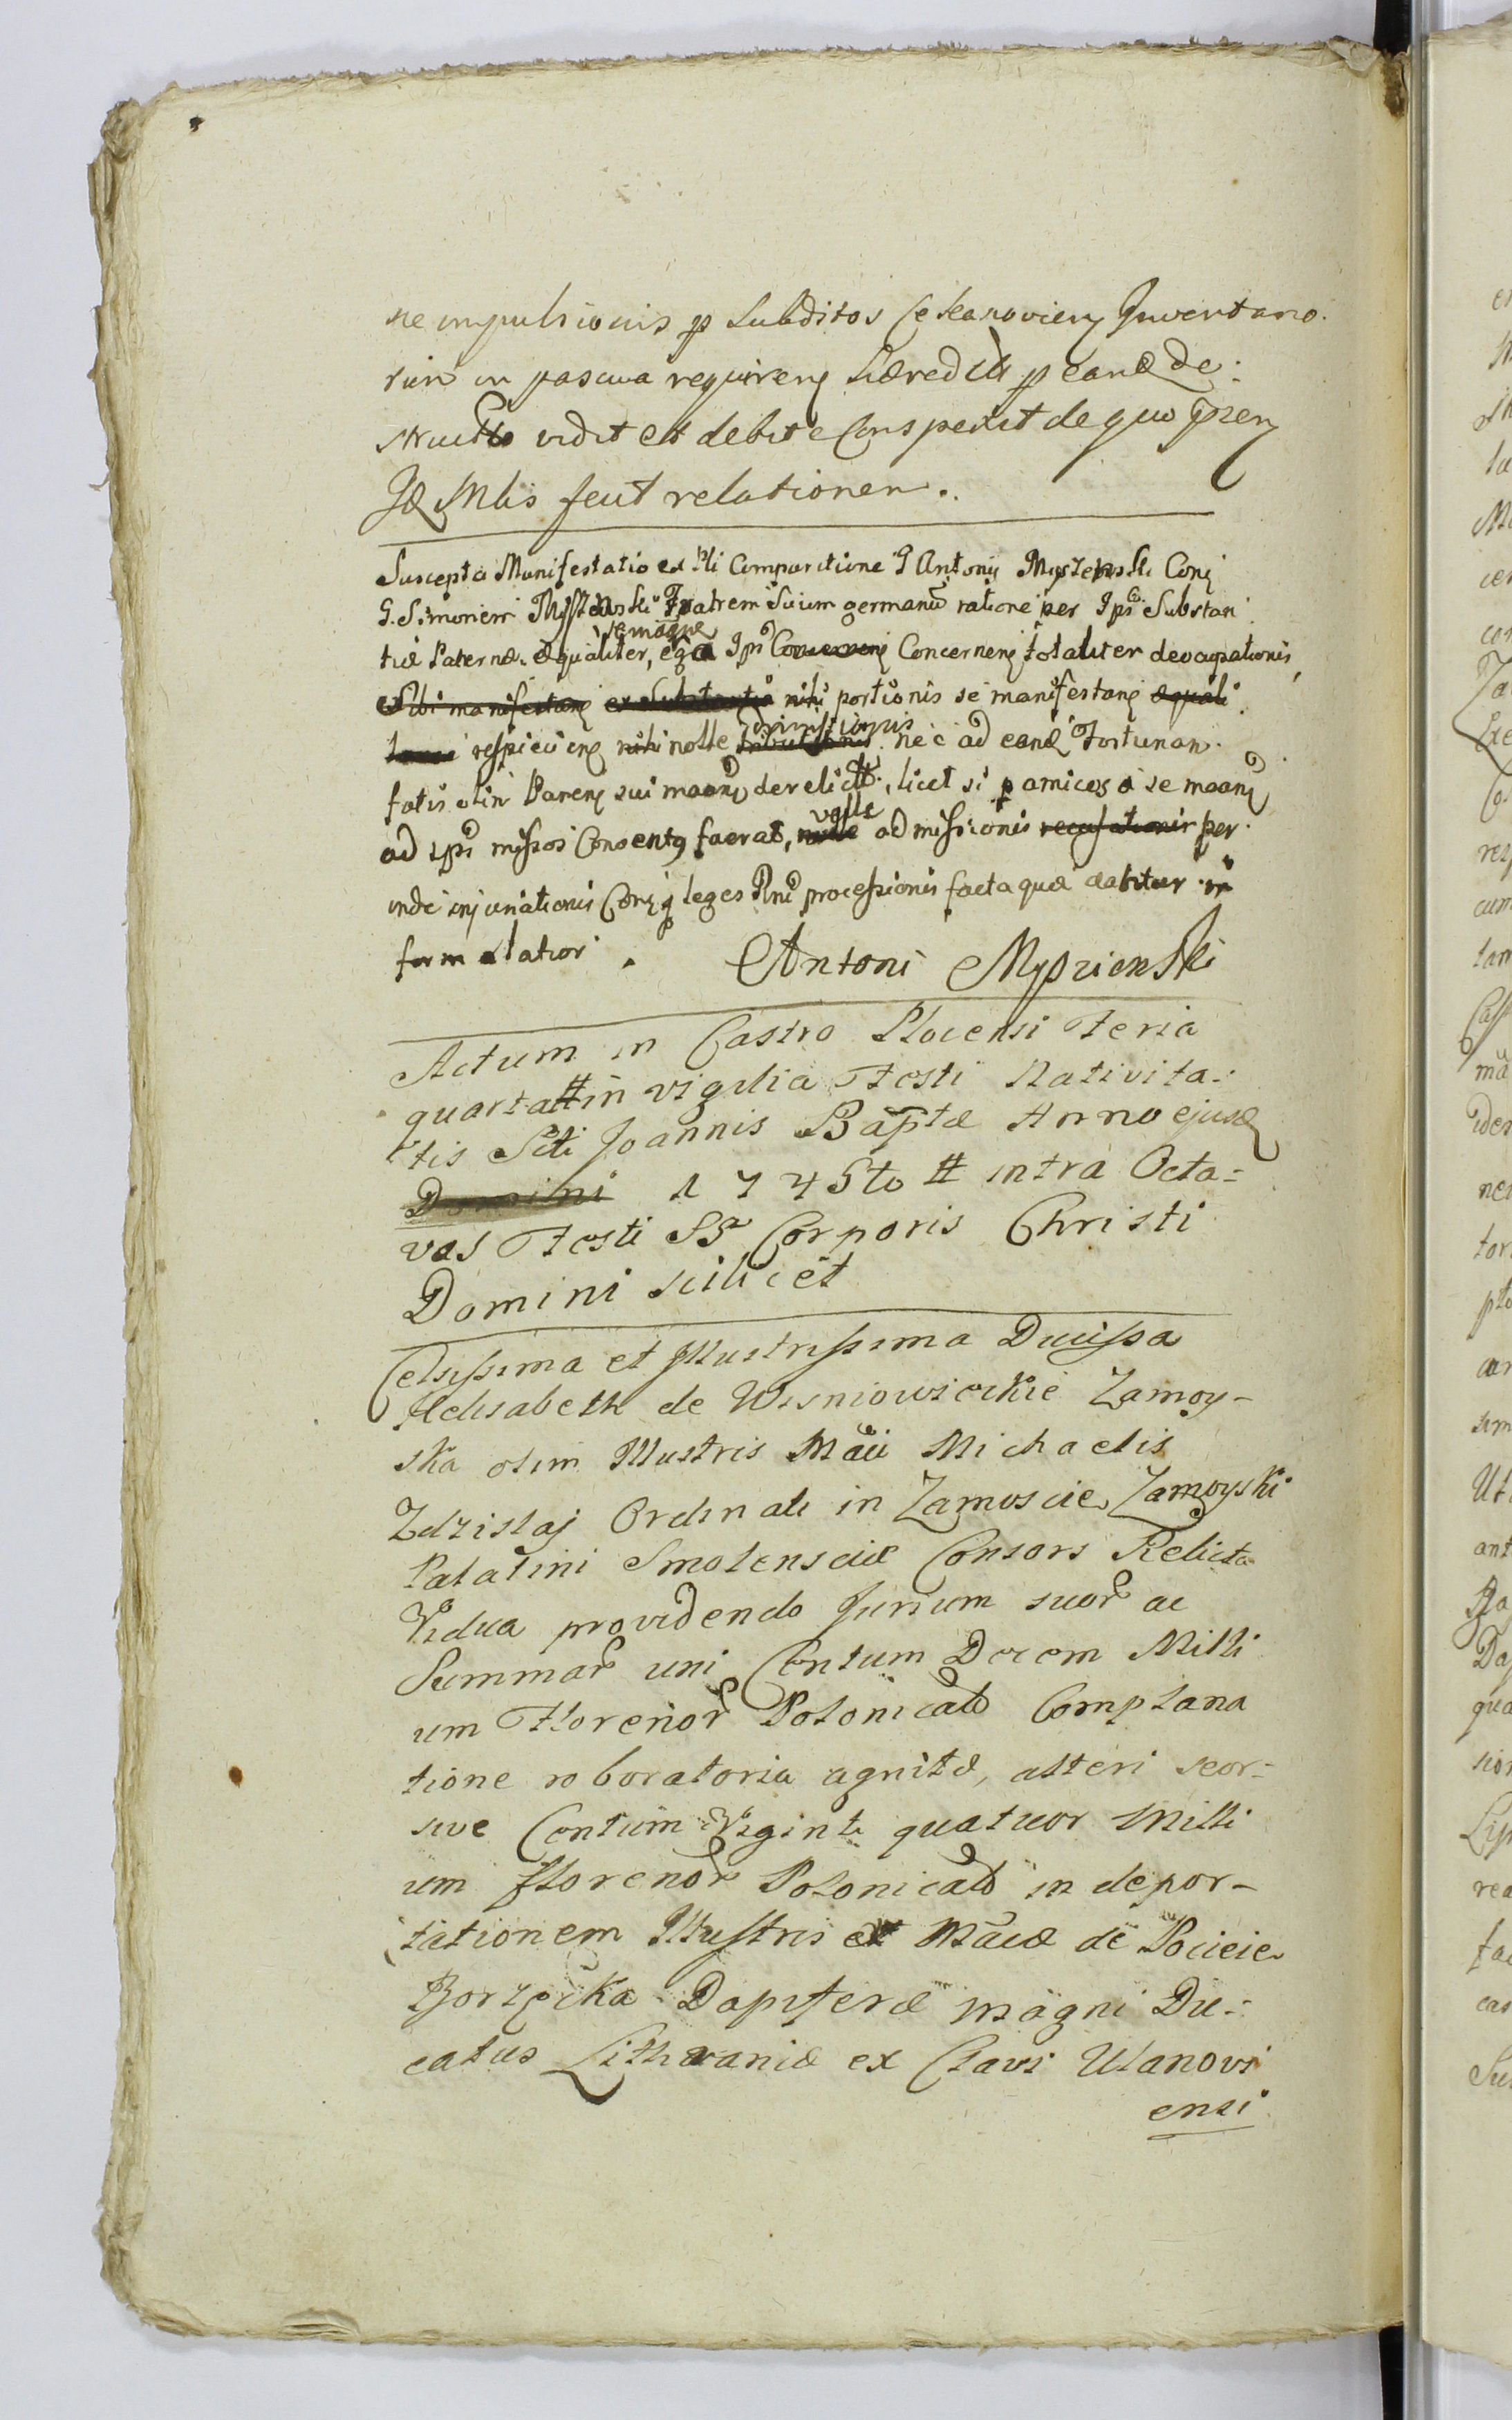 ne impulsionis p Subditos Cekanovien Inventario.
rum in pascua requiren hæredit p eand de:
structo vidit et debite Conspexit de quo pren
Id Mlis fecit relationem.
Suscepta Manifestatio ex pli Comparitione G Antonij Myszenski Conj
G. Simonem Myszenski Fratrem Suum germanu ratione per Ipsu Substan
tiæ Paternæ æqualiter, semoque Ips Concernen Concernen totaliter devagationis
Sibi manifestan ex Substantia nihi portionis se manifestan æquali
respicien nihi nolle dimissionis tributionis nec ad eand Fortunam
fatis olim Paren sui derelict, licet si p amicos a se
ad Ips missos Consent fuerat, velle nolle admissionis recusationis per
inde injuriationis Conj leges Rni processionis facta quæ dabitur in
form latior. Antoni Myszienski
Actum in Castro Plocensi Feria
quarta # in vigilia Festi Nativita:
tis Scti Joannis Baptæ Anno ejusd
Domini 1745to # intra Octa:
vas Festi SS Corporis Christi
Domini scilicet
Celsissima et Illustrissima Ducissa
Elisabeth de Wisniowieckie Zamoy-
ska olim Illustris Maci Michaelis
Zdzislaj Ordinati in Zamoscie Zamoyski
Palatini Smolensciæ Consors Relicta
Vidua providendo Jurium suor ac
Summar uni Centum Decem Milli
um Florenor Polonicali Complana
tione roboratoria agnitæ, alteri seor:
sive Centum Viginti quatuor Milli
um florenor Polonicali in depor-
tationem Illustris et Macæ de Pocieie
Borzęcka Dapiferæ magni Du:
catus Lithvaniæ ex Clavi Ulanovi
ensi